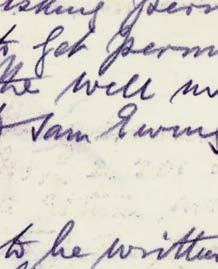 to get perm
the well m
Sam Ewing
to be written